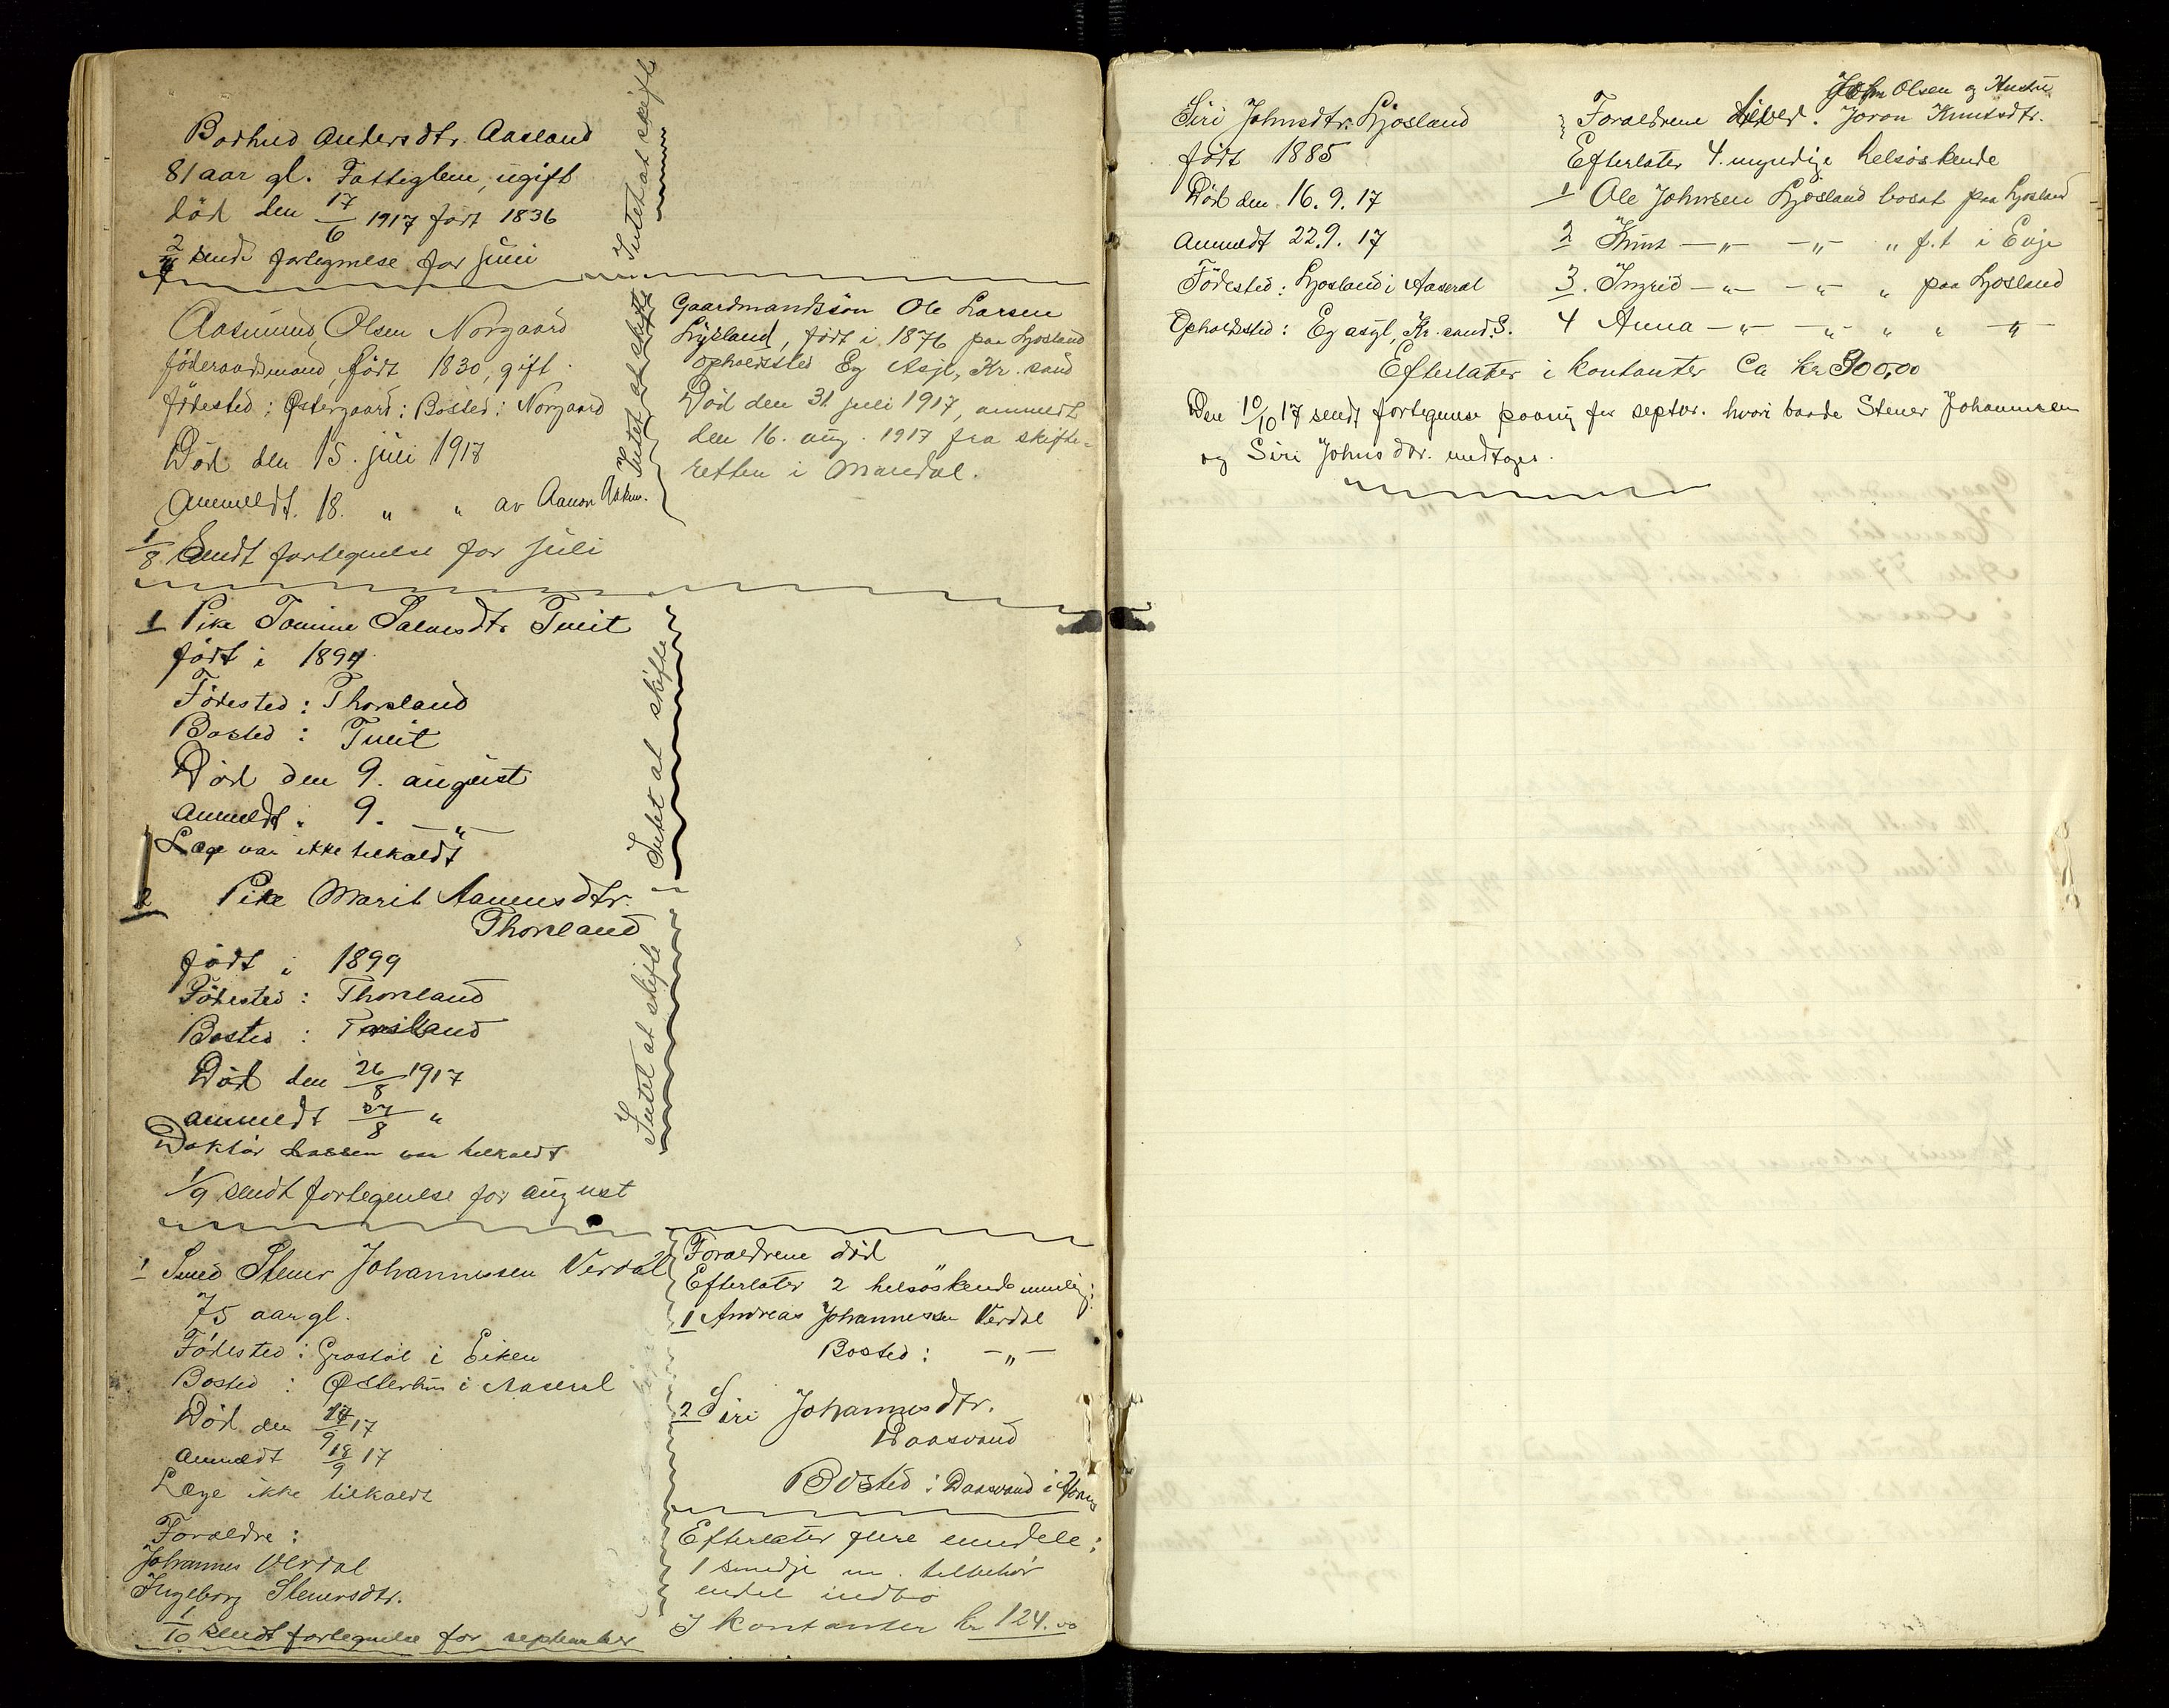 Borhild Andersdtr. Aasland
81 aar gl. Fattiglem, ugift
död den 17/6 1917 født 1836
sendt fortegnelse for juni
Intet at skifte
Aasmund Olsen Norgaard
föderaadsmand, födt 1830, gift
födested: Östergaard: Bosted: Norgaard
Död den 15. juli 1917
Anmeldt. 18. " " av Aanon
1/8 Sendt fortegnelse for juli
Intet at skifte
Gaardmandssön Ole Larsen
Ljosland, födt i 1876 paa Ljosland
opholdssted Eg Asyl, Kr.sand
Död den 31 juli 1917, anmeldt
den 16. aug. 1917 fra skifte-
retten i Mandal.
1 Pike Tomine Salvesdtr Tveit
födt i 1894
Födested: Thorsland
Bosted: Tveit
Död den 9. august
anmeldt " 9. —"—
Læge var ikke tilkaldt
Intet at skifte
2 Pike Marit Aanensdtr.
Thorsland
födt i 1899
Födested: Thorsland
Bosted: Torsland
Död den 26/8 1917
anmeldt 27/8 "
Doktor Lassen var tilkaldt
Intet at skifte
1/9 sendt fortegnelse for august
1 Smed Stener Johannessen Verdal
75 aar gl.
Födested: Grastöl i Eiken
Bosted: Österhus i Aaseral
Död den 17/9 17
anmeldt 18/9 17
Læge ikke tilkaldt
Foraeldre:
Johannes Verdal
Ingeborg Stenersdtr.
1/10 sendt fortegnelse for september
Foraeldrene död
Efterlater 2 helsöskende nemlig:
1 Andreas Johannessen Verdal
Bosted: —"—
2 Siri Johannesdtr.
Daasvand
Bosted: Daasvand i
Efterlater flere eiendele:
1 smedje m. tilbehör
endel indbo
I kontanter kr 124.00
Siri Johnsdtr. Ljosland
födt 1885
Död den 16. 9. 17
Anmeldt 22. 9. 17
Födested: Ljosland i Aaseral
Opholdssted: Eg asyl, Kr.sand S.
John Olsen og Hustru
Foraeldrene död. Joron Knutsdtr.
Efterlater 4 myndige helsöskende
1 Ole Johnsen Ljosland bosat paa Ljosland
2 Knut —"— —"— " f.t i Evje
3. Ingrid —"— —"— " paa Ljosland
4 Anna —"— —"— " " —"—
Efterlater i kontanter Ca kr 900,00
Den 10/10 17 sendt fortegnelse paany for septbr. hvori baade Stener Johannessen
og Siri Johnsdtr. medtages.